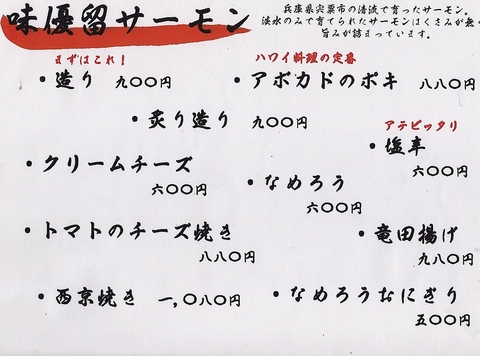 味優留サーモン
兵庫県宍粟市の清流で育ったサーモン。
淡水のみで育てられたサーモンはくさみが無く
旨みが詰まっています。
まずはこれ！
・造り 九〇〇円
ハワイ料理の定番
・アボカドのポキ 八八〇円
・炙り造り 九〇〇円
アテピッタリ
・塩辛
六〇〇円
・クリームチーズ
六〇〇円
・なめろう
六〇〇円
・トマトのチーズ焼き
八八〇円
・竜田揚げ
九八〇円
・西京焼き 一,〇八〇円
・なめろうおにぎり
五〇〇円